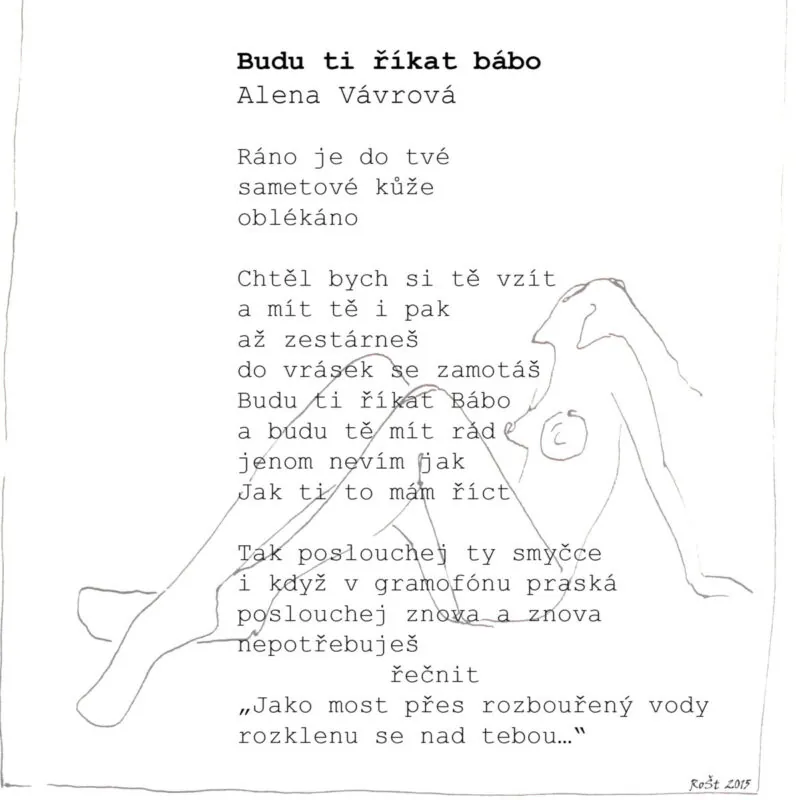 Budu ti říkat bábo
Alena Vávrová
Ráno je do tvé
sametové kůže
oblékáno
Chtěl bych si tě vzít
a mít tě i pak
až zestárneš
do vrásek se zamotáš
Budu ti říkat Bábo
a budu tě mít rád
jenom nevím jak
Jak ti to mám říct
Tak poslouchej ty smyčce
i když v gramofónu praská
poslouchej znova a znova
nepotřebuješ
řečnit
„Jako most přes rozbouřený vody
rozklenu se nad tebou…“
Rošt 2015